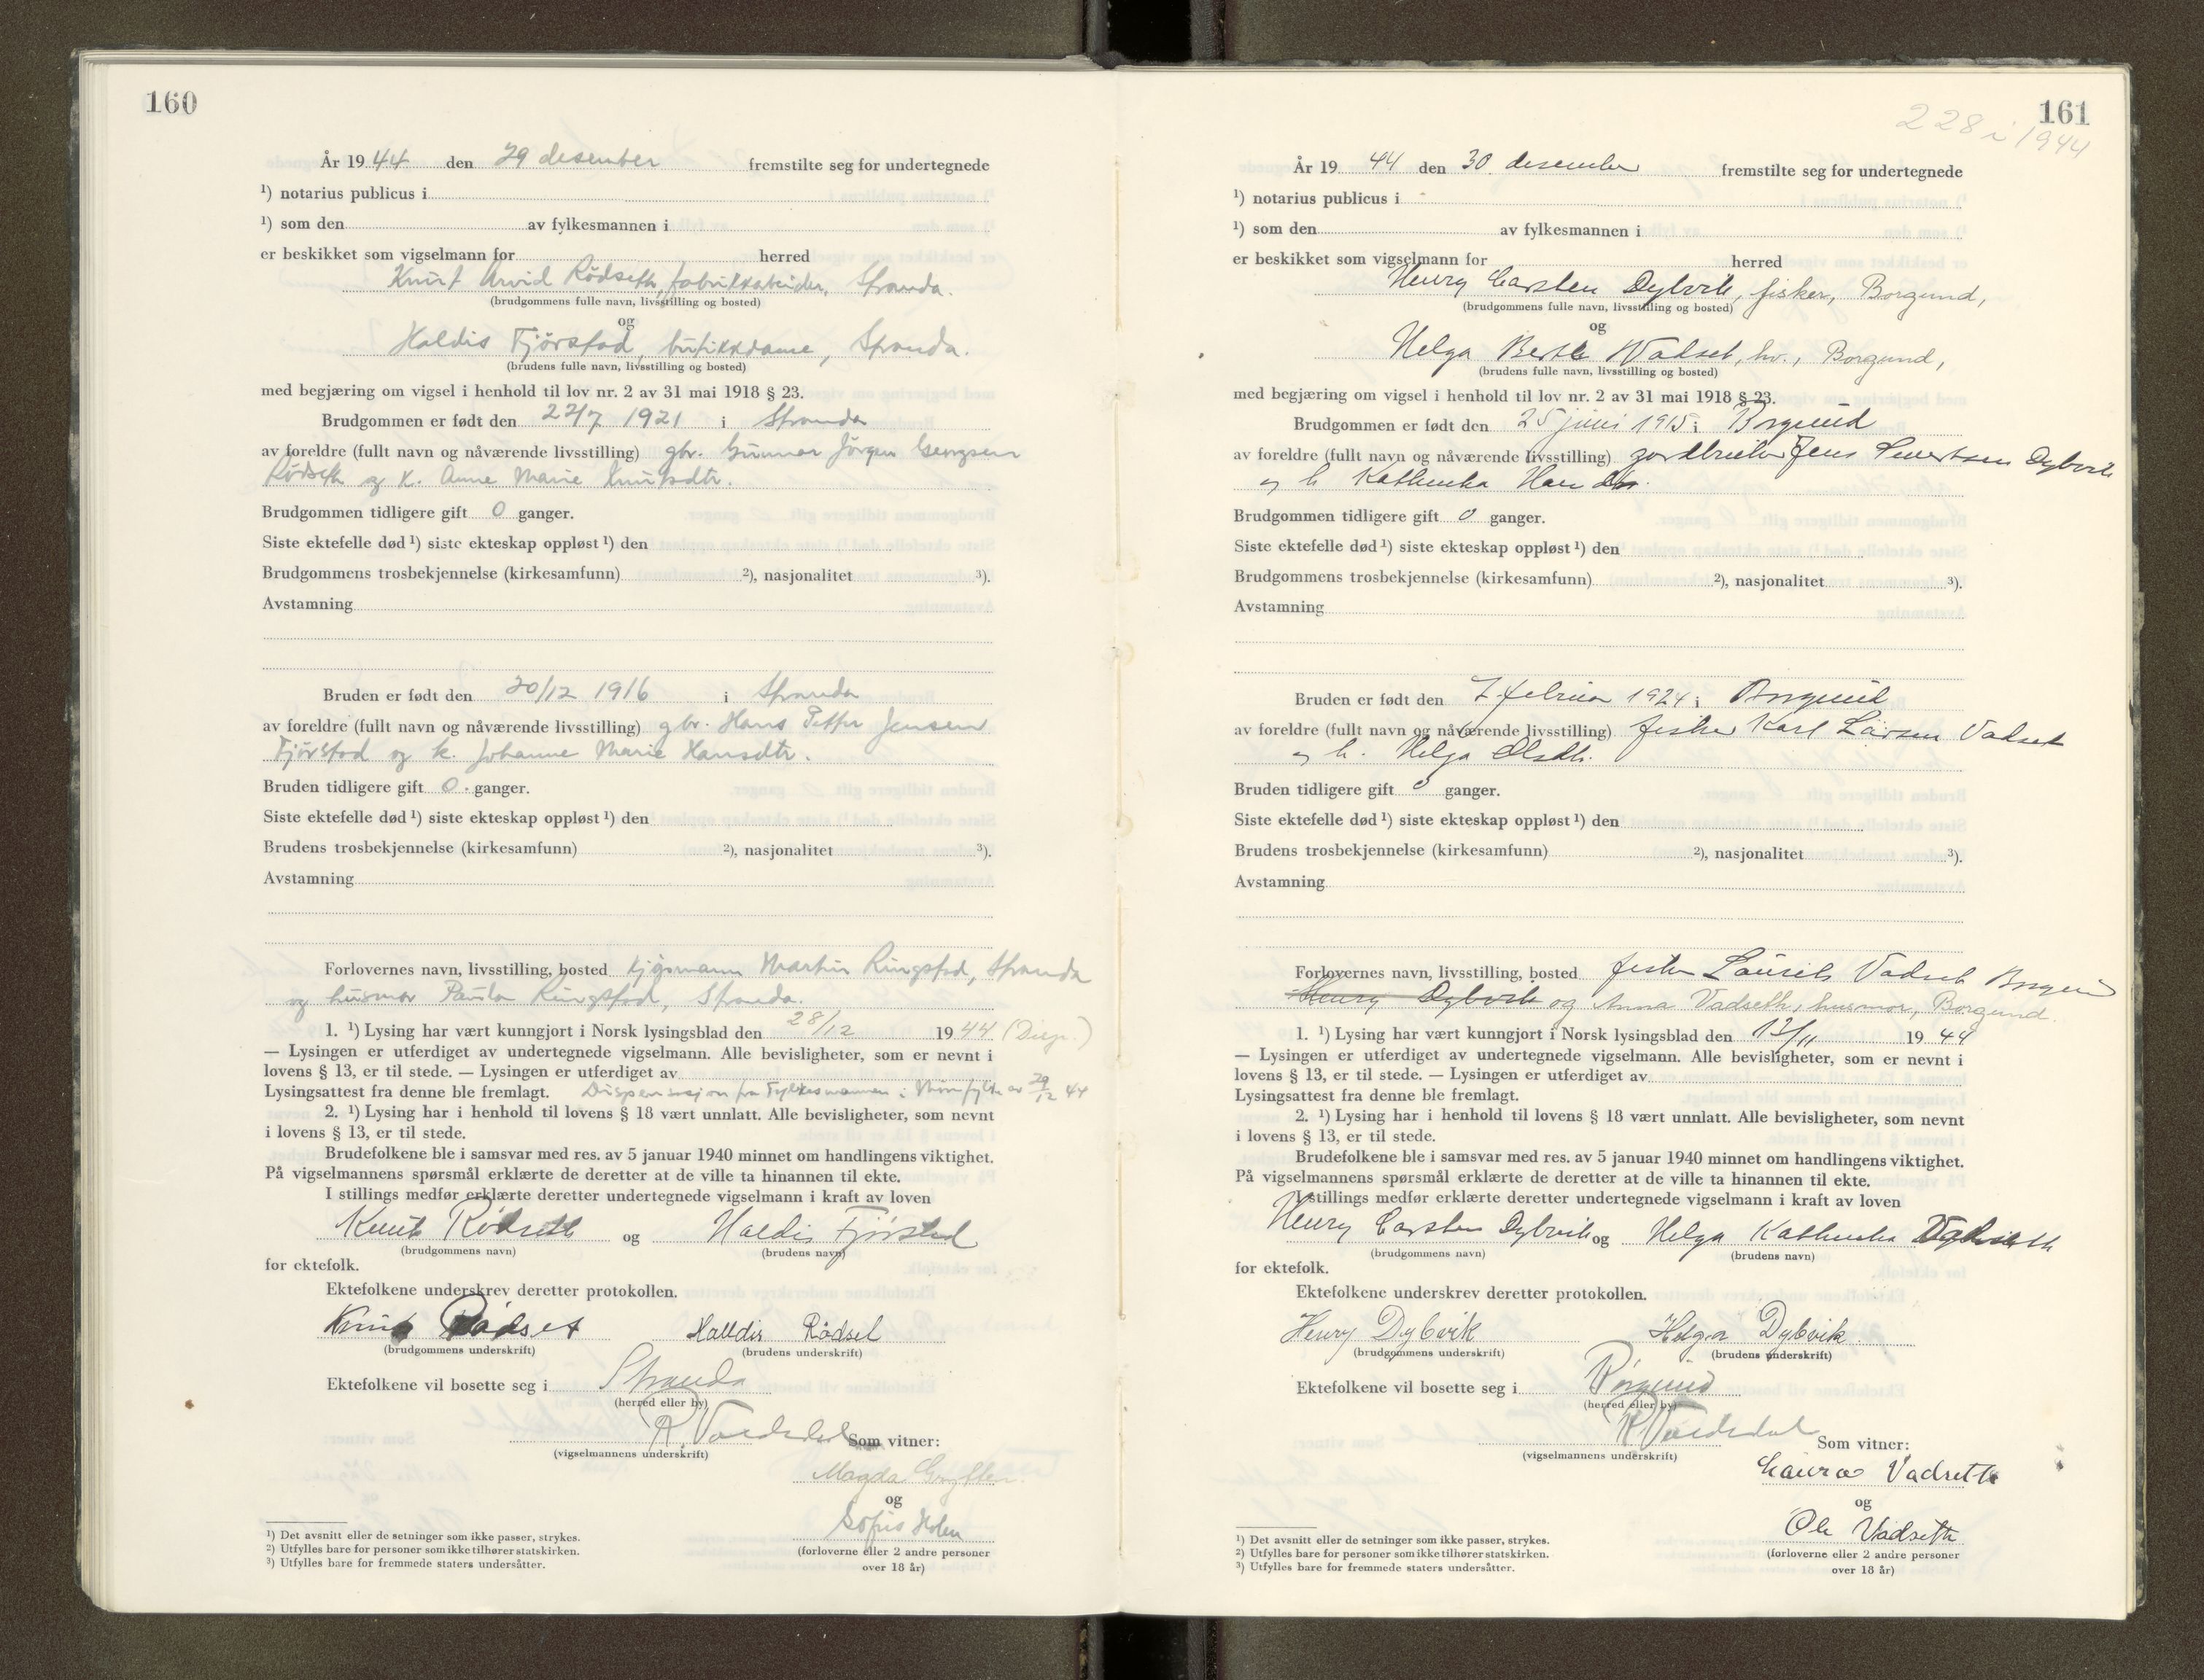 160
År 1944 den 29 desember fremstilte seg for undertegnede
¹) notarius publicus i
¹) som den av fylkesmannen i
er beskikket som vigselmann for herred
Knut Arvid Rödseth, fabrikkarbeider, Stranda.
(brudgommens fulle navn, livsstilling og bosted)
og
Haldis Fjørstad, butikkdame, Stranda.
(brudens fulle navn, livsstilling og bosted)
med begjæring om vigsel i henhold til lov nr. 2 av 31 mai 1918 § 23.
Brudgommen er født den 22/7 1921 i Stranda
av foreldre (fullt navn og nåværende livsstilling) gbr. Gunnar Jörgen Georgsen
Rödseth og k. Anne Marie Knutsdtr.
Brudgommen tidligere gift 0 ganger.
Siste ektefelle død ¹) siste ekteskap oppløst ¹) den
Brudgommens trosbekjennelse (kirkesamfunn) ²), nasjonalitet ³).
Avstamning
Bruden er født den 20/12 1916 i Stranda
av foreldre (fullt navn og nåværende livsstilling) gbr. Hans Petter Jensen
Fjørstad og k. Johanne Marie Hansdtr.
Bruden tidligere gift 0. ganger.
Siste ektefelle død ¹) siste ekteskap oppløst ¹) den
Brudens trosbekjennelse (kirkesamfunn) ²), nasjonalitet ³).
Avstamning
Forlovernes navn, livsstilling, bosted Martin Ringstad, Stranda
og husmor Paula Ringstad, Stranda.
1. ¹) Lysing har vært kunngjort i Norsk lysingsblad den 28/12 1944 (Disp.)
— Lysingen er utferdiget av undertegnede vigselmann. Alle bevisligheter, som er nevnt i
lovens § 13, er til stede. — Lysingen er utferdiget av
Lysingsattest fra denne ble fremlagt. Dispensasjon fra Fylkesmannen i av 29/12 44
2. ¹) Lysing har i henhold til lovens § 18 vært unnlatt. Alle bevisligheter, som nevnt
i lovens § 13, er til stede.
Brudefolkene ble i samsvar med res. av 5 januar 1940 minnet om handlingens viktighet.
På vigselmannens spørsmål erklærte de deretter at de ville ta hinannen til ekte.
I stillings medfør erklærte deretter undertegnede vigselmann i kraft av loven
Knut Rödseth og Haldis Fjørstad
(brudgommens navn) (brudens navn)
for ektefolk.
Ektefolkene underskrev deretter protokollen.
Knut Rødset Halldis Rødset
(brudgommens underskrift) (brudens underskrift)
Ektefolkene vil bosette seg i Stranda
(herred eller by)
R. Vardedal Som vitner:
(vigselmannens underskrift)
Magda
og
Sofus Holen
(forloverne eller 2 andre personer
over 18 år)
¹) Det avsnitt eller de setninger som ikke passer, strykes.
²) Utfylles bare for personer som ikke tilhører statskirken.
³) Utfylles bare for fremmede staters undersåtter.
161
228 i 1944
År 1944 den 30. desember fremstilte seg for undertegnede
¹) notarius publicus i
¹) som den av fylkesmannen i
er beskikket som vigselmann for herred
Henry Carsten Dybvik, fisker, Borgund,
(brudgommens fulle navn, livsstilling og bosted)
og
Helga Vadset, hv., Borgund,
(brudens fulle navn, livsstilling og bosted)
med begjæring om vigsel i henhold til lov nr. 2 av 31 mai 1918 § 23.
Brudgommen er født den 25 juni 1915 i Borgund
av foreldre (fullt navn og nåværende livsstilling) gardbruker Jens Dybvik
og h. Kathinka
Brudgommen tidligere gift 0 ganger.
Siste ektefelle død ¹) siste ekteskap oppløst ¹) den
Brudgommens trosbekjennelse (kirkesamfunn) ²), nasjonalitet ³).
Avstamning
Bruden er født den 7 februar 1924 i Borgund
av foreldre (fullt navn og nåværende livsstilling) fisker Karl Larsen Vadset
og h. Helga Olsdtr.
Bruden tidligere gift 0 ganger.
Siste ektefelle død ¹) siste ekteskap oppløst ¹) den
Brudens trosbekjennelse (kirkesamfunn) ²), nasjonalitet ³).
Avstamning
Forlovernes navn, livsstilling, bosted fisker Laurits Vadset Borgund
Henry Dybvik og Anna Vadseth, husmor, Borgund.
1. ¹) Lysing har vært kunngjort i Norsk lysingsblad den 13/11 1944
— Lysingen er utferdiget av undertegnede vigselmann. Alle bevisligheter, som er nevnt i
lovens § 13, er til stede. — Lysingen er utferdiget av
Lysingsattest fra denne ble fremlagt.
2. ¹) Lysing har i henhold til lovens § 18 vært unnlatt. Alle bevisligheter, som nevnt
i lovens § 13, er til stede.
Brudefolkene ble i samsvar med res. av 5 januar 1940 minnet om handlingens viktighet.
På vigselmannens spørsmål erklærte de deretter at de ville ta hinannen til ekte.
I stillings medfør erklærte deretter undertegnede vigselmann i kraft av loven
Henry Carsten Dybvik og Helga Kathinka
(brudgommens navn) (brudens navn)
for ektefolk.
Ektefolkene underskrev deretter protokollen.
Henry Dybvik Helga Dybvik
(brudgommens underskrift) (brudens underskrift)
Ektefolkene vil bosette seg i Borgund
(herred eller by)
R Vardedal
(vigselmannens underskrift) Som vitner:
Laura Vadseth
og
Ole Vadseth
(forloverne eller 2 andre personer
over 18 år)
¹) Det avsnitt eller de setninger som ikke passer, strykes.
²) Utfylles bare for personer som ikke tilhører statskirken.
³) Utfylles bare for fremmede staters undersåtter.